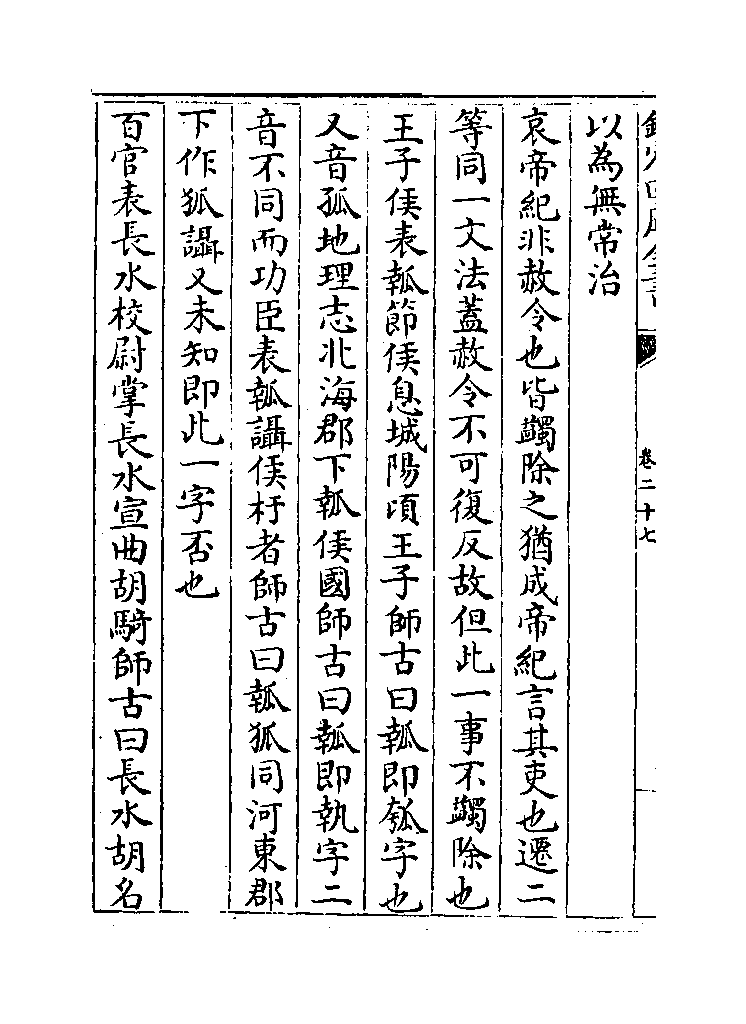 欽定四庫全書 卷二十七
以為無常治
哀帝紀非赦令也皆蠲除之猶成帝紀言其吏也遷二
等同一文法蓋赦令不可復反故但此一事不蠲除也
王子侯表瓡節侯息城陽頃王子師古曰瓡即瓠字也
又音孤地理志北海郡下瓡侯國師古曰瓡即執字二
音不同而功臣表瓡讘侯杅者師古曰瓡狐同河東郡
下作狐讘又未知即此一字否也
百官表長水校尉掌長水宣曲胡騎師古曰長水胡名